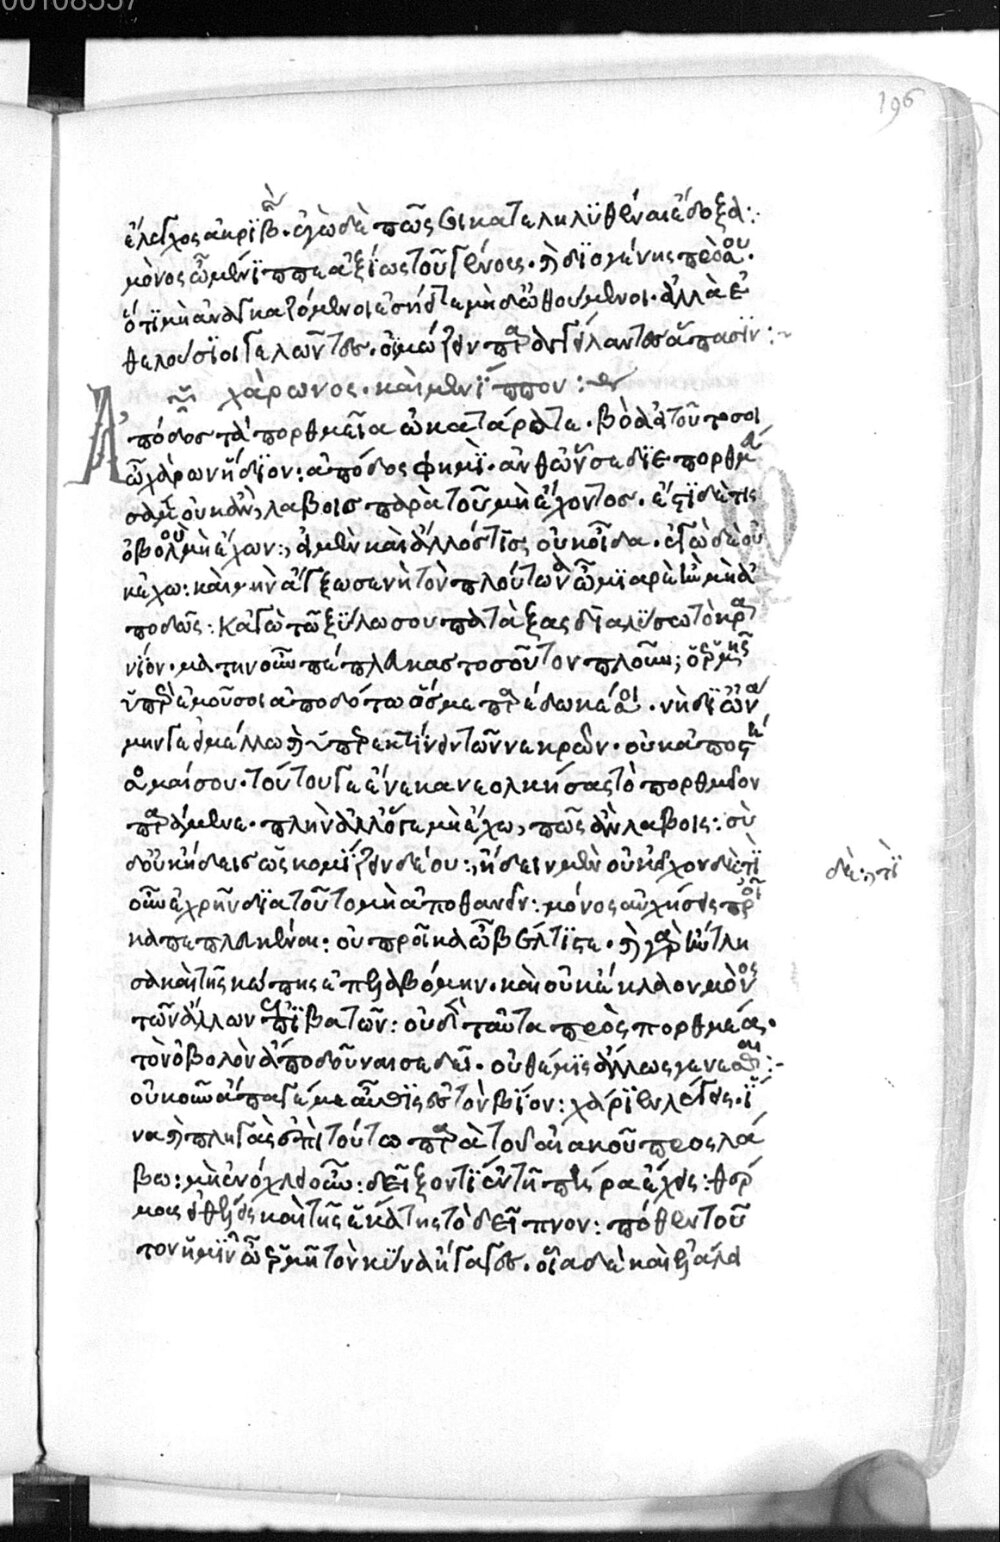 196
ἔλεγχος ἀκριβὴς. ἐγὼ δὲ πῶς σι κατεληλϋθέναι ἔδοξα:
μόνος ὦ μένϊππε ἀξίως τοῦ γένους. καὶ διογένης πρὸ σοῦ.
ὅτϊ μὴ ἀναγκαζόμενοι ἐσήειτε μὴδ ὠθούμενοι. ἀλλὰ ἐ
θελούσϊοι γελῶντες. οἰμώζειν παραγγείλαντες ἅπασϊν:
χάρωνος. καὶ μενίππου:
Ἀπόδος τὰ πορθμεῖα ὦ κατάρατε. βόα εἰ τοῦτό σοι
ὦ χάρων ἥδϊον: ἀπόδος φημϊ. ἀνθ ὧν σε διεπορθμεύ
σαμεν οὐκ ἂν λάβοις παρὰ τοῦ μὴ ἔχοντος. ἔστϊ δέ τις
ὀβολὸν μὴ ἔχων: εἰ μὲν καὶ ἄλλός τϊς οὐκ οἶδα. ἐγὼ δὲ οὐ
κ ἔχω: καὶ μὴν ἄγξω σε νὴ τὸν πλούτωνα ὦ μϊαρὲ ἢν μὴ ἀ
ποδῶς: κἀγὼ τῶ ξϋλω σου πατάξας διαλϋσω τὸ κρα
νϊον. μάτην οὖν πέπλευκας τοσοῦτον πλοῦν; ὁ ἑρμῆς
ὑπὲρ ἐμοῦ σοι ἀποδότω ὅς με παρέδωκέ σοι. νὴ δϊ ὠνά
μην γε εἰ μέλλω καὶ ὑπερεκτίνειν τῶν νεκρῶν. οὐκ ἀποστή
σομαί σου. τούτου γε ἕνεκα νεολκήσας τὸ πορθμεῖον
παράμενε. πλὴν ἀλλ ὅ γε μὴ ἔχω, πῶς ἂν λάβοις: σὺ
δ οὐκ ἤδεις ὡς κομϊζειν δέον: ἤδειν μὲν οὐκ εἶχον δὲ τϊ
οὖν ἐχρῆν διὰ τοῦτο μὴ ἀποθανεῖν: μόνος αὐχήσεις προῖ
κα πεπλευκέναι: οὐ προῖκα ὦ βέλτϊστε. καὶ γὰρ ἤντλη
σα καὶ τῆς κώπης ἐπελαβόμην. καὶ οὐκ ἔκλαον μόνος
τῶν ἄλλων ἐπϊβατῶν: οὐδὲν ταῦτα πρὸς πορθμέα.
τὸν ὀβολὸν ἀποδοῦναί σε δεῖ. οὐ θέμϊς ἄλλως γενέσθαι:
οὐκοῦν ἄπαγέ με αὖθϊς ἐς τὸν βϊον: χάρϊεν λέγεις. ἵ
να καὶ πληγὰς ἐπὶ τούτω παρὰ τοῦ αἰακοῦ προσλά
βω: μὴ ἐνόχλει οὖν: δεῖξον τϊ ἐν τῆ πήρα ἔχεις: θέρ
μους εἰ θέλεις καὶ τῆς ἑκάτης τὸ δεῖπνον: πόθεν τοῦ
τον ἡμϊν ὦ ἑρμῆ τὸν κϋνα ἤγαγες. οἷα δὲ καὶ ἐλάλει
δὲ: τϊ